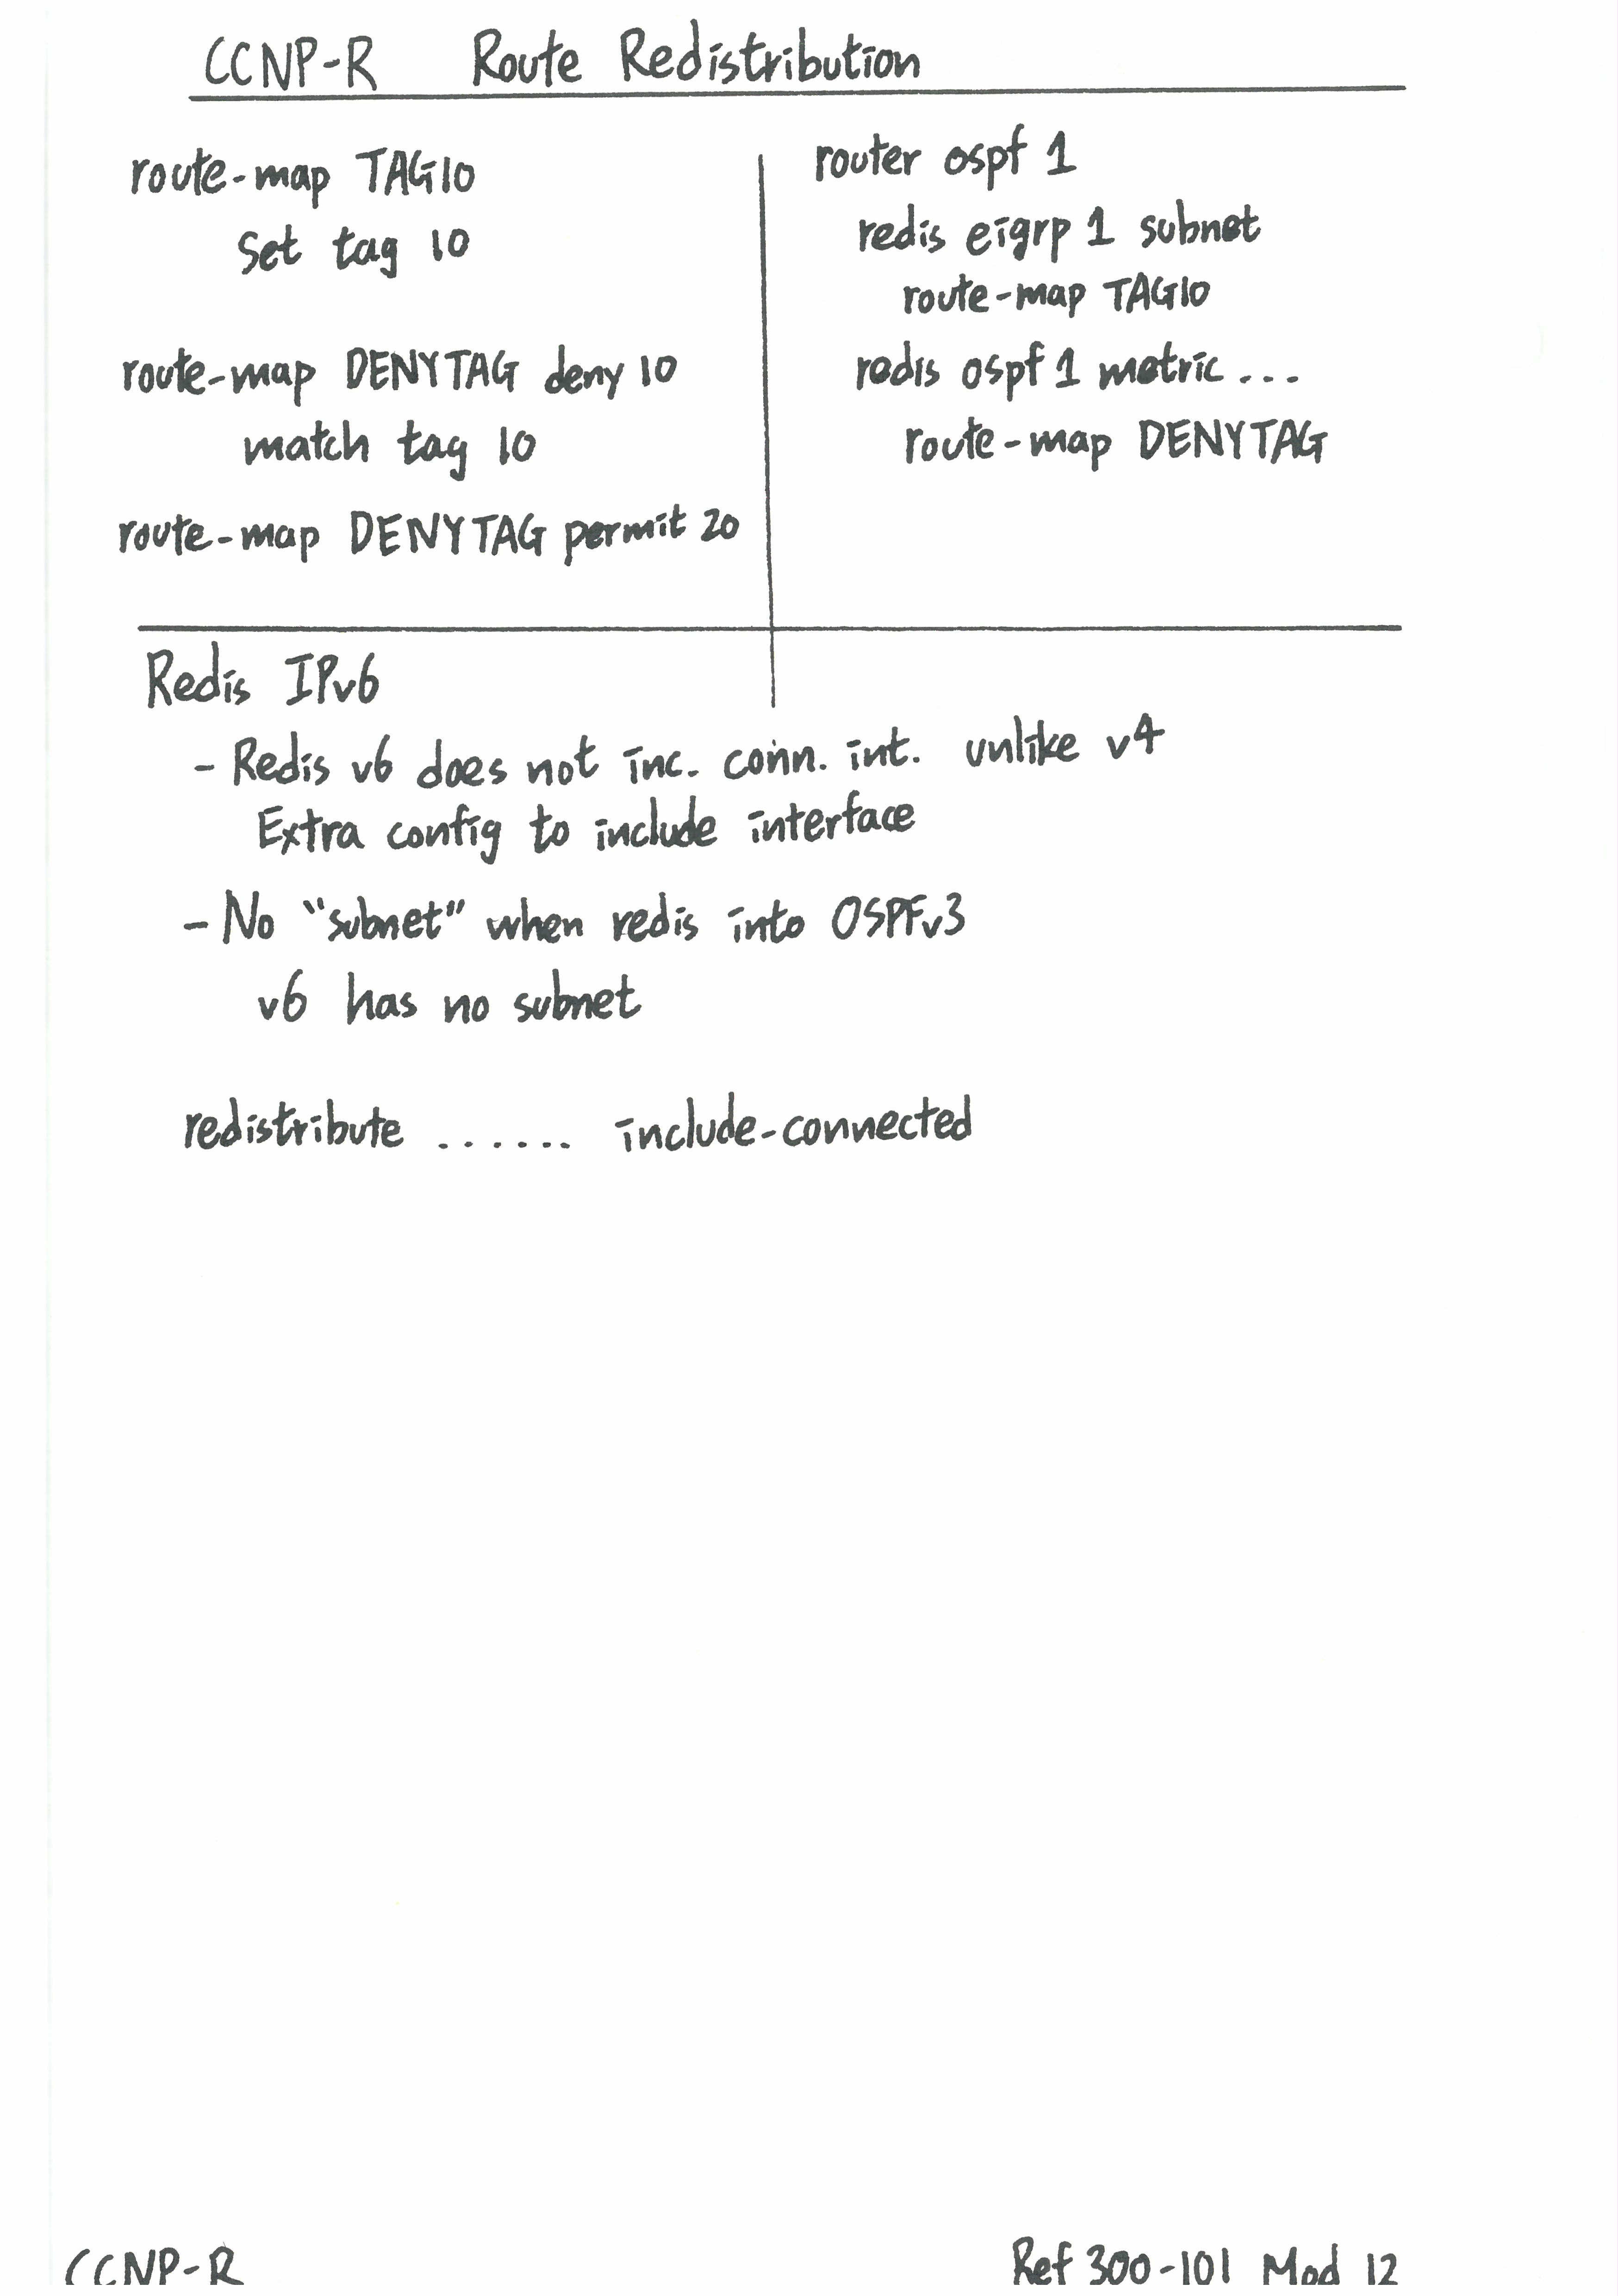 CCNP-R Route Redistribution
route-map TAG10
set tag 10
route-map DENYTAG deny 10
match tag 10
route-map DENYTAG permit 20
router ospf 1
redis eigrp 1 subnet
route-map TAG10
redis ospf 1 metric ...
route-map DENYTAG
Redis IPv6
- Redis v6 does not inc. conn. int. unlike v4
Extra config to include interface
- No "subnet" when redis into OSPFv3
v6 has no subnet
redistribute ...... include-connected
CCNP-R Ref 300-101 Mod 12